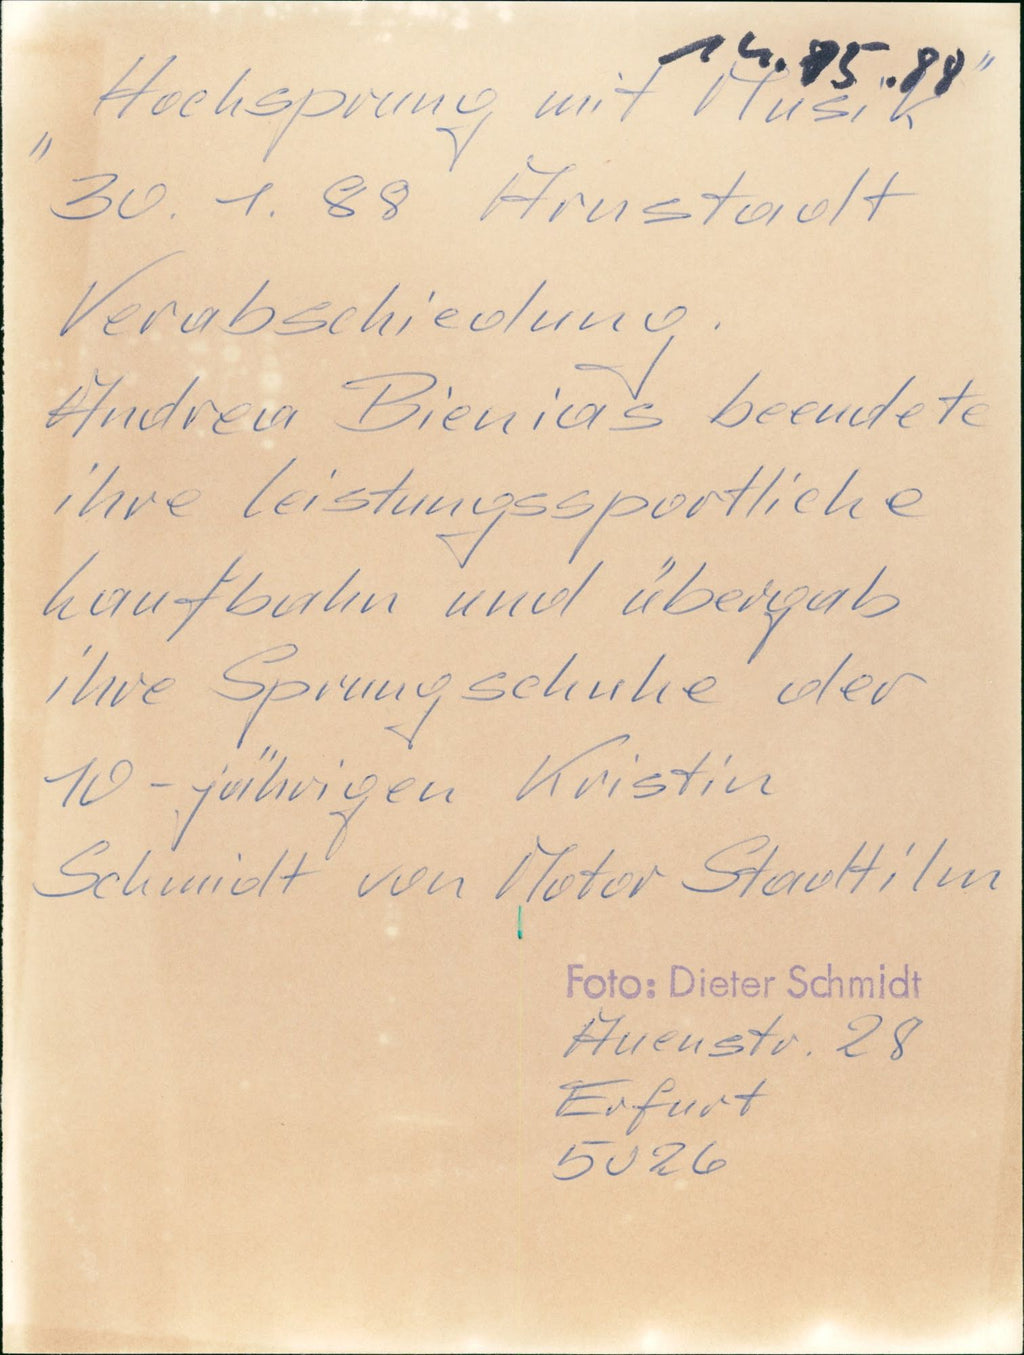 14.05.88
"Hochsprung mit Musik"
30.1.88 Arnstadt
Verabschiedung.
Andrea Bienias beendete
ihre leistungssportliche
Laufbahn und übergab
ihre Sprungschuhe der
10-jährigen Kristin
Schmidt von Motor Stadtilm
Foto: Dieter Schmidt
Auenstr. 28
Erfurt
5026